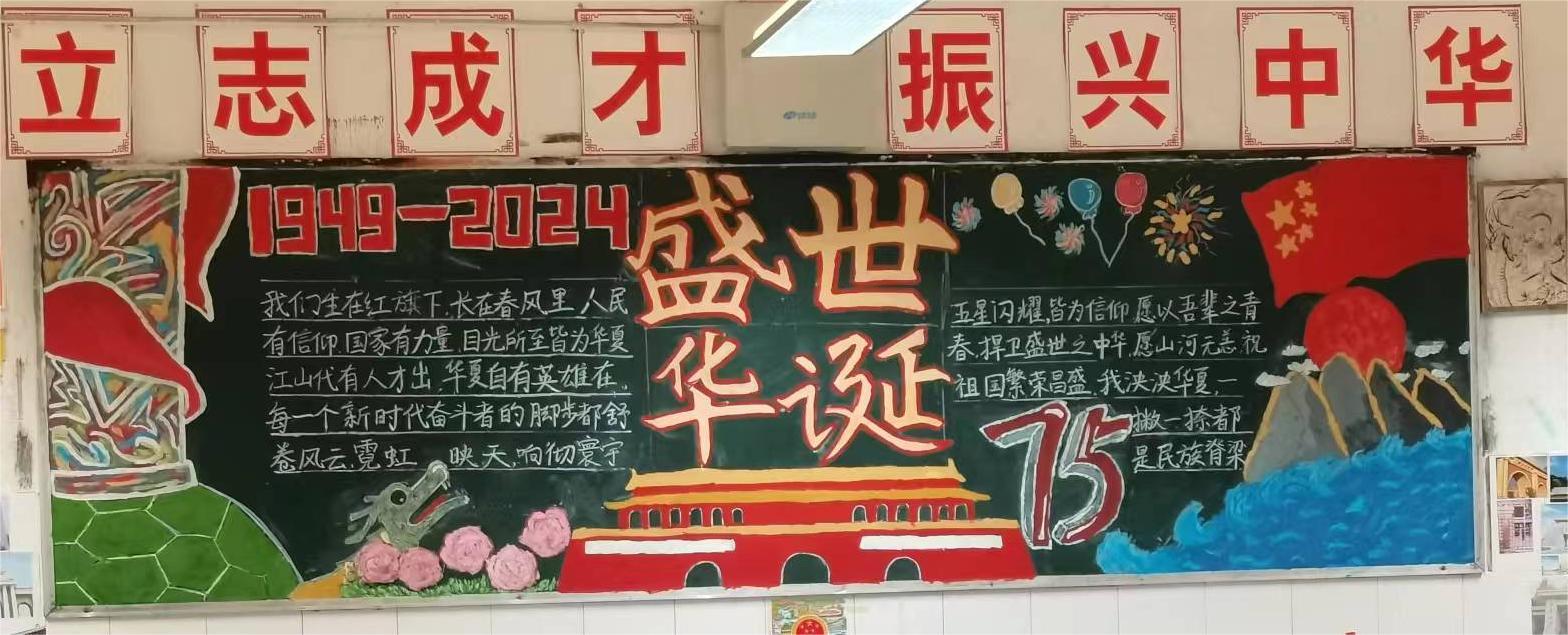 立志成才 振兴中华
1949-2024
盛世
华诞
我们生在红旗下,长在春风里,人民
有信仰,国家有力量,目光所至皆为华夏
江山代有人才出,华夏自有英雄在,
每一个新时代奋斗者的脚步都舒
卷风云,霓虹 映天,响彻寰宇
五星闪耀,皆为信仰,愿以吾辈之青
春,捍卫盛世之中华,愿山河无恙,祝
祖国繁荣昌盛,我泱泱华夏,一
撇一捺都
是民族脊梁
75